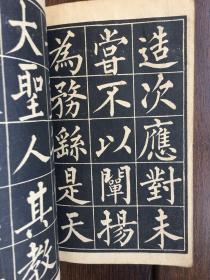 造次應對未
嘗不以闡揚
為務繇是天
大聖人其教